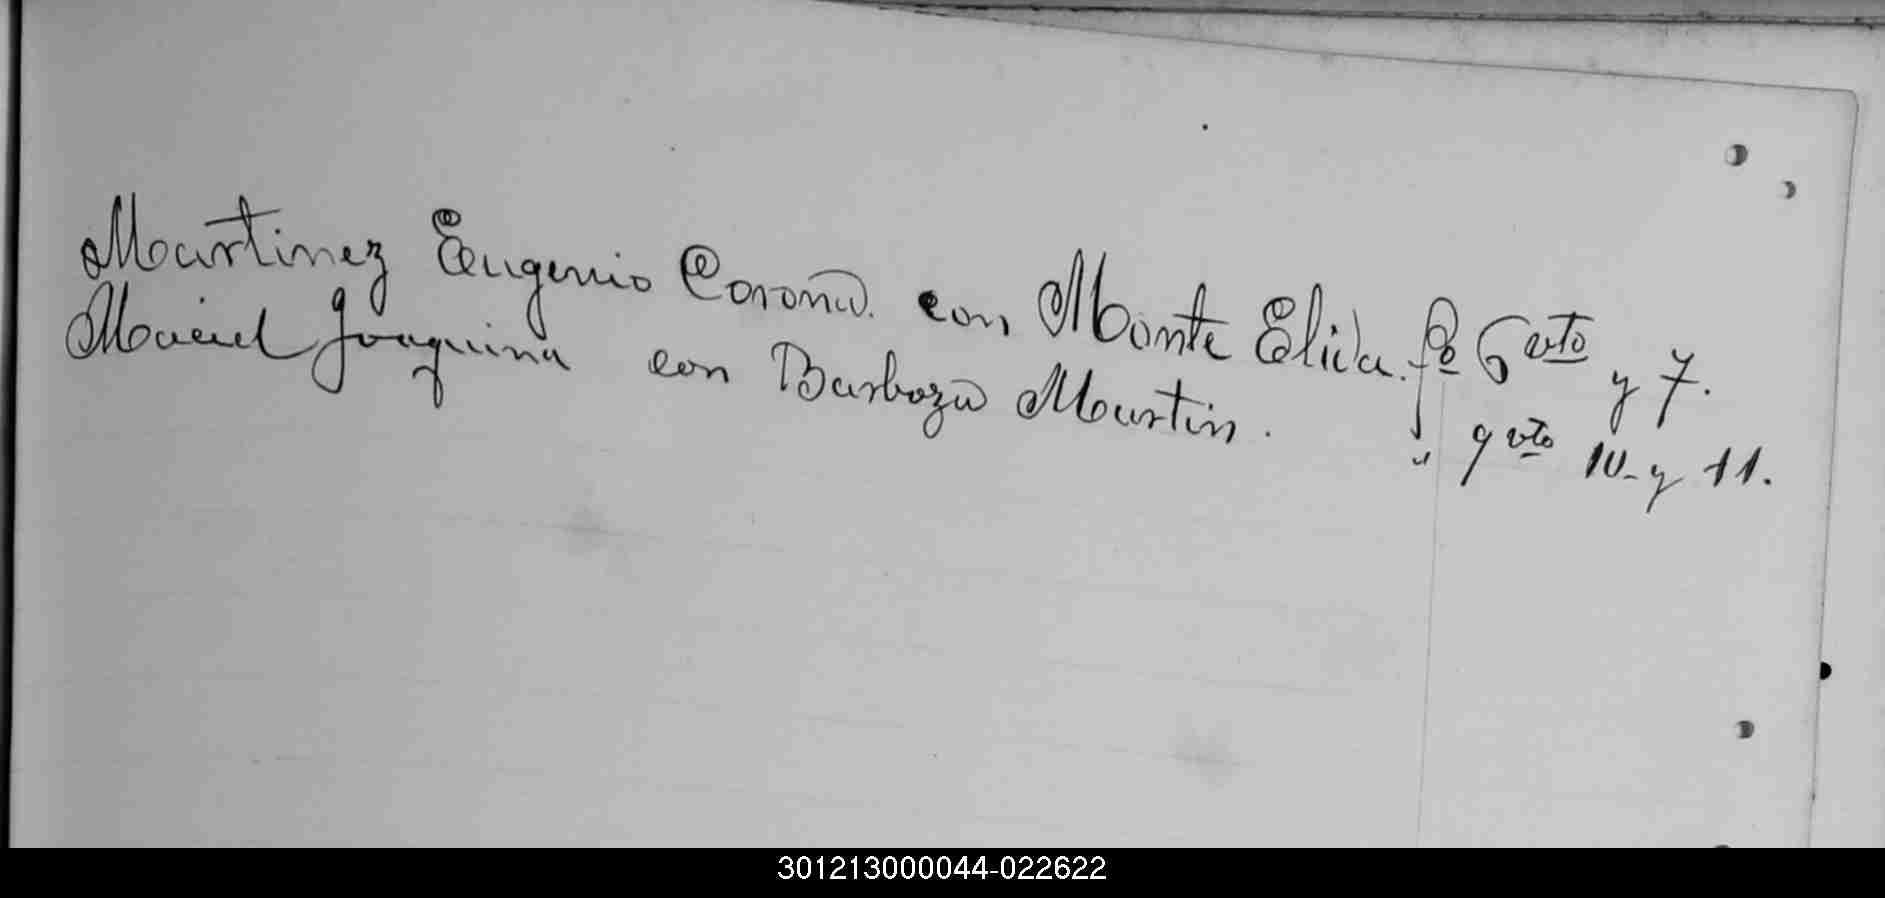 Martinez Eugenio Corona. con Monte Elida. fo 6 vto y 7.
Maciel Joaquina con Barboza Martin. " 9 vto 10 y 11.
301213000044-022622